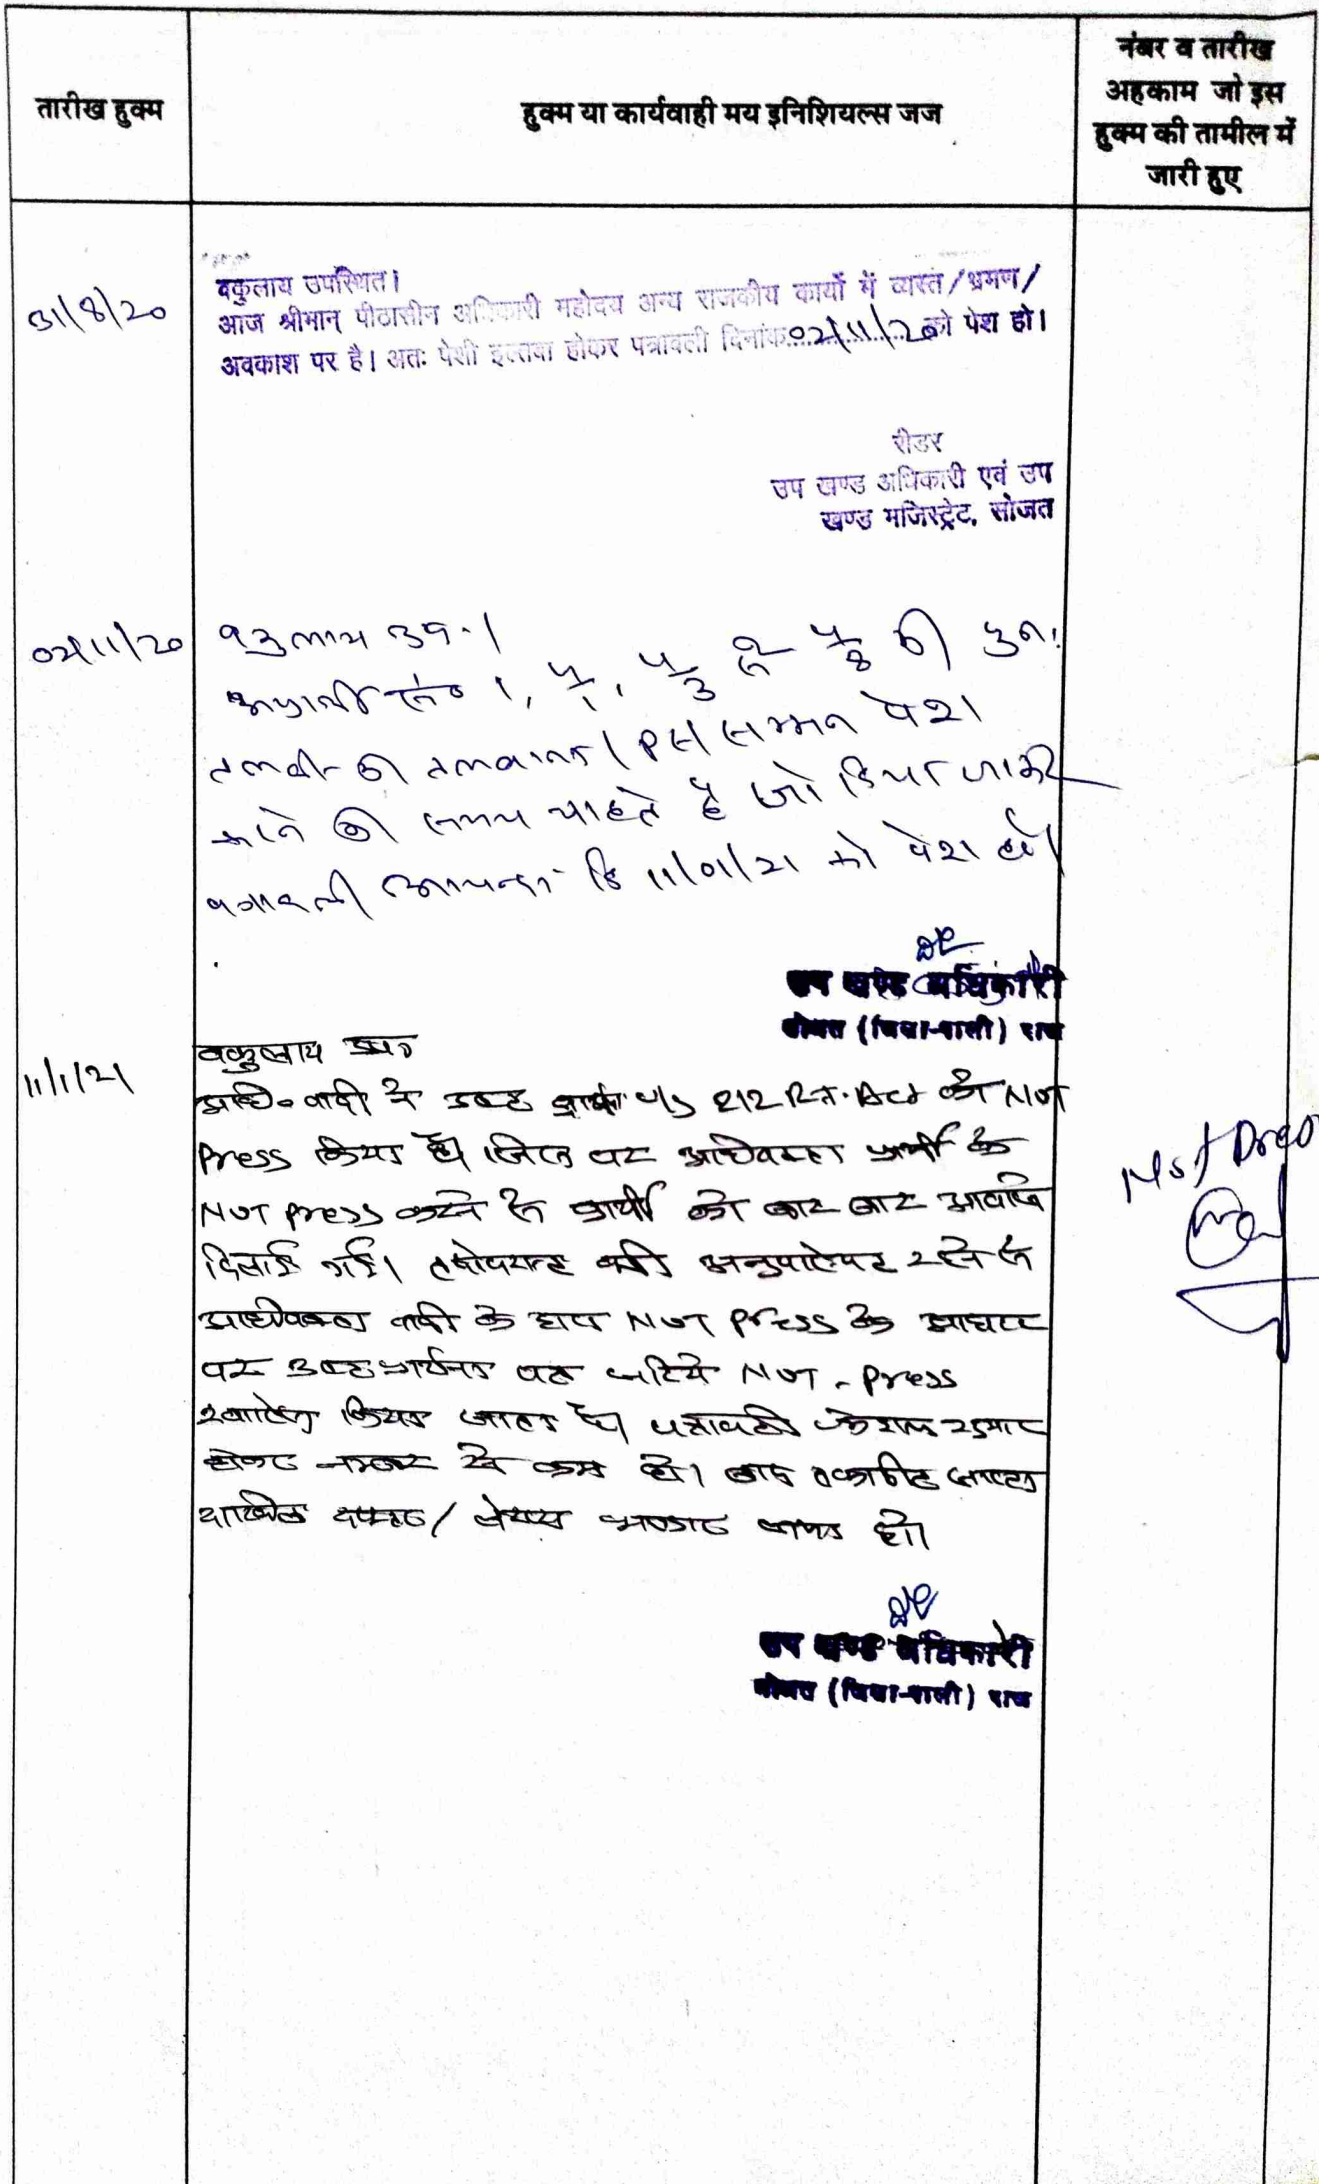 तारीख हुक्म
हुक्म या कार्यवाही मय इनिशियल्स जज
नंबर व तारीख
अहकाम जो इस
हुक्म की तामील में
जारी हुए
31/8/20
वकुलाय उपस्थित।
आज श्रीमान् पीठासीन अधिकारी महोदय अन्य राजकीय कार्यो में व्यस्त/भ्रमण/
अवकाश पर है। अतः पेशी इल्तवा होकर पत्रावली दिनांक..02/11/20..को पेश हो।
रीडर
उप खण्ड अधिकारी एवं उप
खण्ड मजिस्ट्रेट, सोजत
02/11/20
वकुलाय उप.।
अप्रार्थी सं० 1, 4/1, 4/3 से 4/8 की पुनः
तलबी की तलबाना/ PS/ सम्मन पेश
करने की समय चाहते है जो दिया जाकर
पत्रावली आयन्दा दि 11/01/21 को पेश हो।
उप खण्ड अधिकारी
सोजत (जिला-पाली) राज
11/1/21
वकुलाय उप०
अधि० वादी ने उक्त प्रा०पत्र u/s 212 R.T. Act को Not
Press किया है। जिस पर अधिवक्ता प्रार्थी के
Not press करने से प्रार्थी को बार बार आवाज
दिलाई गई। तदोपरान्त वादी अनुपस्थित रहने से
अधिवक्ता वादी के द्वारा Not Press के आधार
पर उक्त प्रार्थना पत्र जरिये Not - Press
खारिज किया जाता है। पत्रावली फैसल शुमार
होकर नम्बर से कम हो। बाद तकमील जाब्ता
दाखिल दफ्तर/ लेख्य भण्डार जमा हो।
Not Press
उप खण्ड अधिकारी
सोजत (जिला-पाली) राज